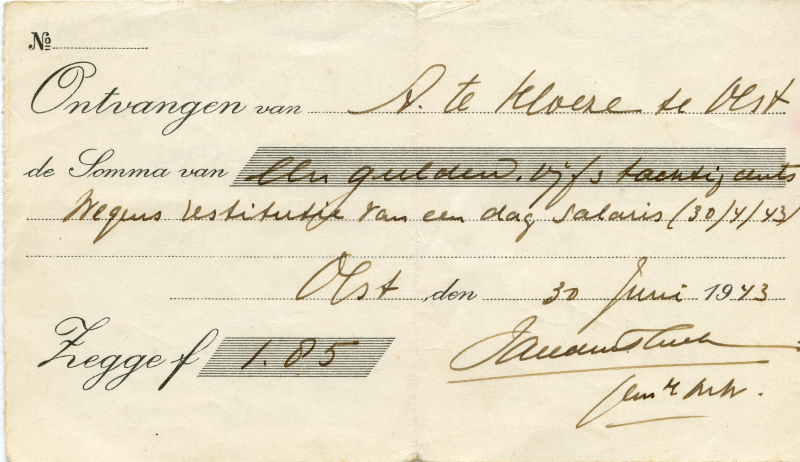 №
Ontvangen van A. te Kloeze te Olst
de Somma van Een gulden. vijf & tachtig cents
Wegens restitutie van een dag salaris (30/4/43)
Olst, den 30 Juni 1943
Zegge f 1.85